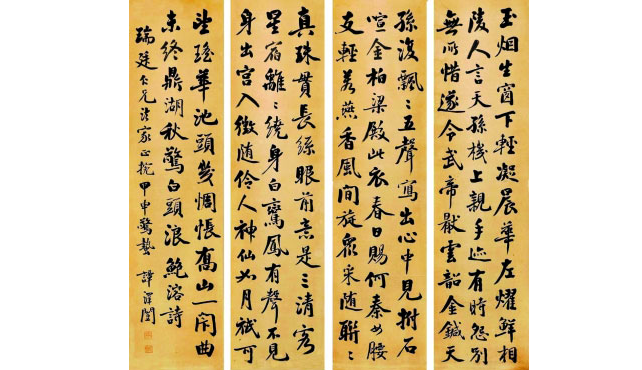 玉烟生窗下輕凝晨華左耀鮮相
陵人言天孫機上親手迹有時怨別
無所惜遂令武帝猒雲韶金鍼天
孫沒飄〻五聲寫出心中見拊石
喧金柏梁殿此衣春日賜何秦女腰
支輕若燕香風間旋衆采随聯〻
真珠貫長絲眼前意是三清客
星宿離〻繞身白鸞鳳有聲不見
身出宮入徵随伶人神仙如月祇可
望瑤華池頭幾惆悵喬山一閇曲
未終鼎湖秋驚白頭浪 鮑溶詩
瑞廷仁兄法家正捥 甲申驚蟄 譚澤闓